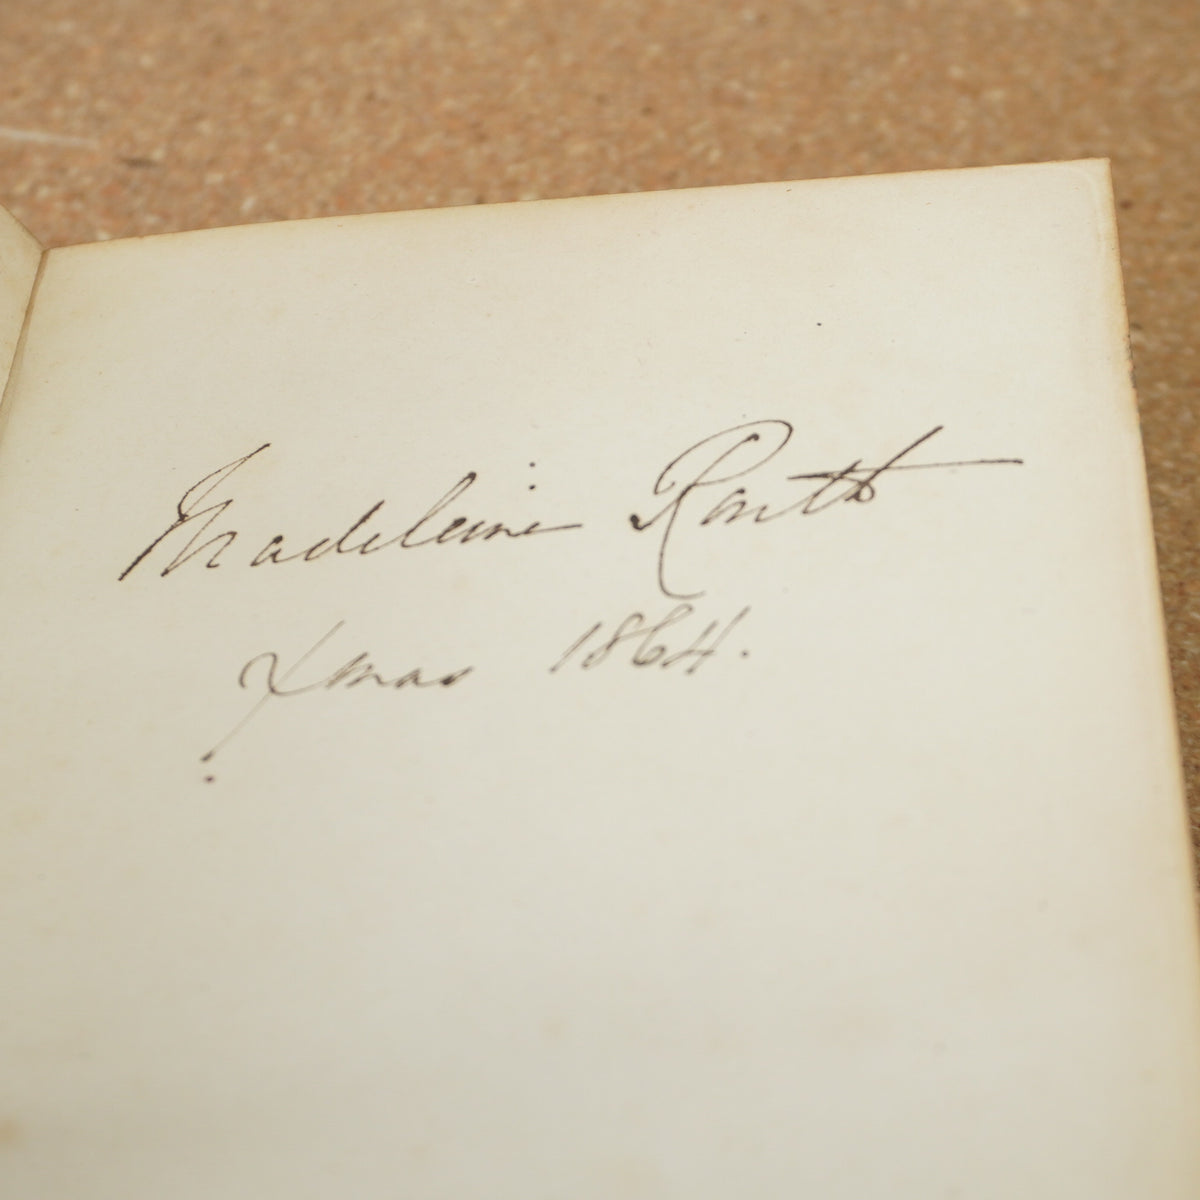 Madeleine Routh
Xmas 1864.